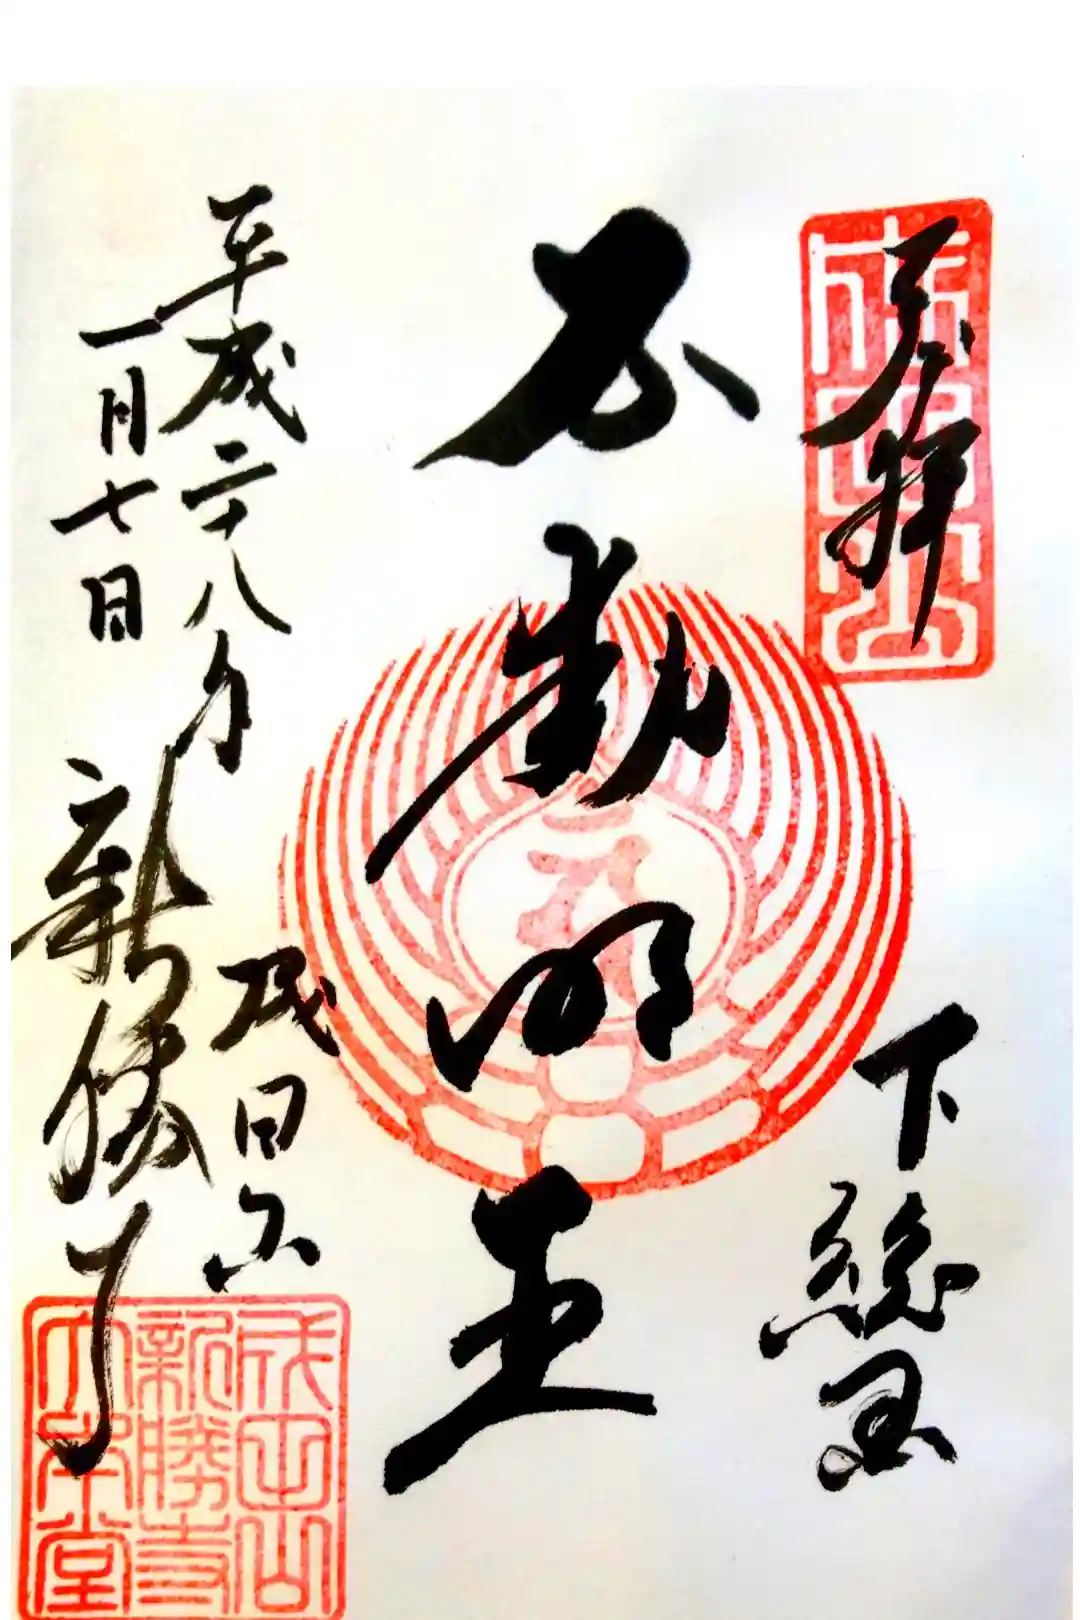 奉拝
下総国
不動明王
平成二十八年
一月七日
成田山
新勝寺
成田山
新勝寺
大本堂